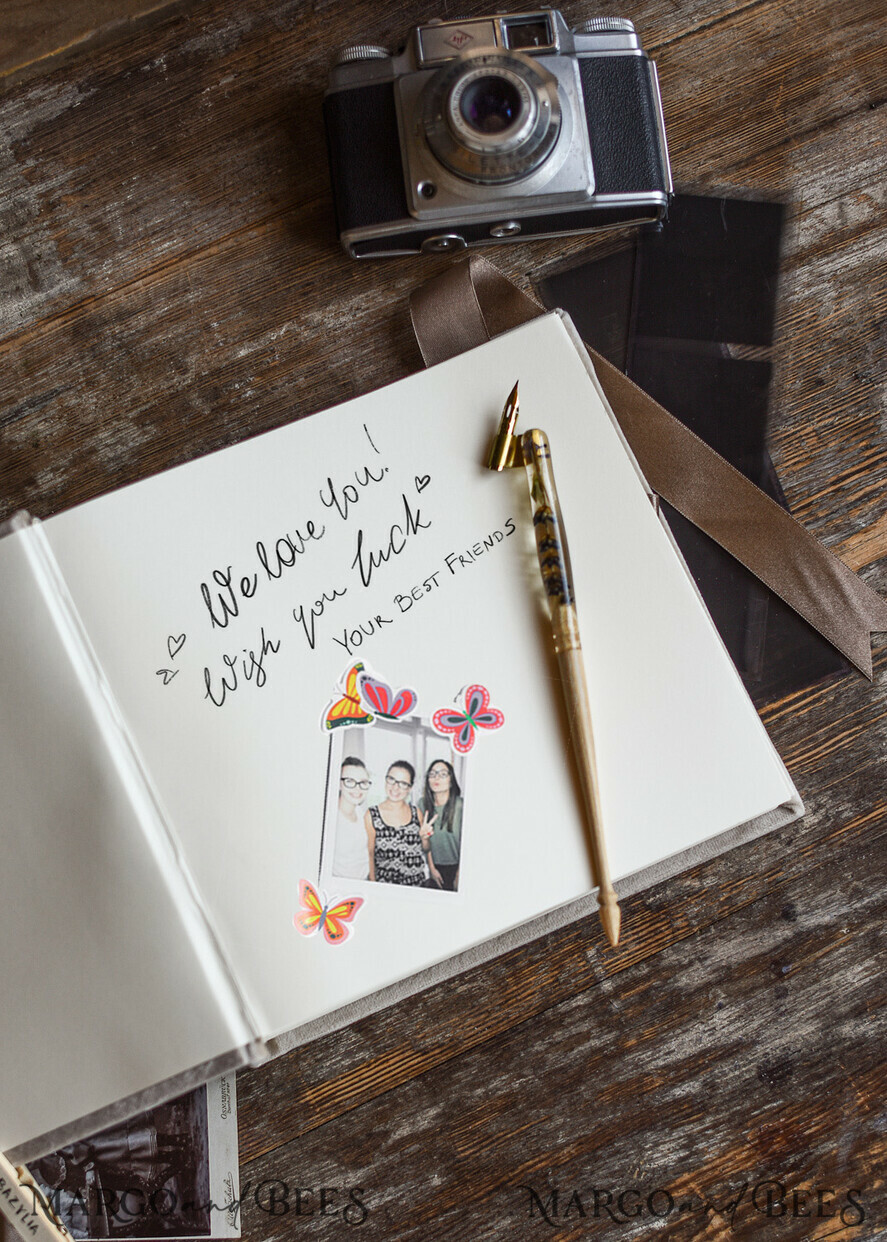 We love you!
Wish you luck
Your Best Friends
BAZYLIA
MARGO and BEES
MARGO and BEES